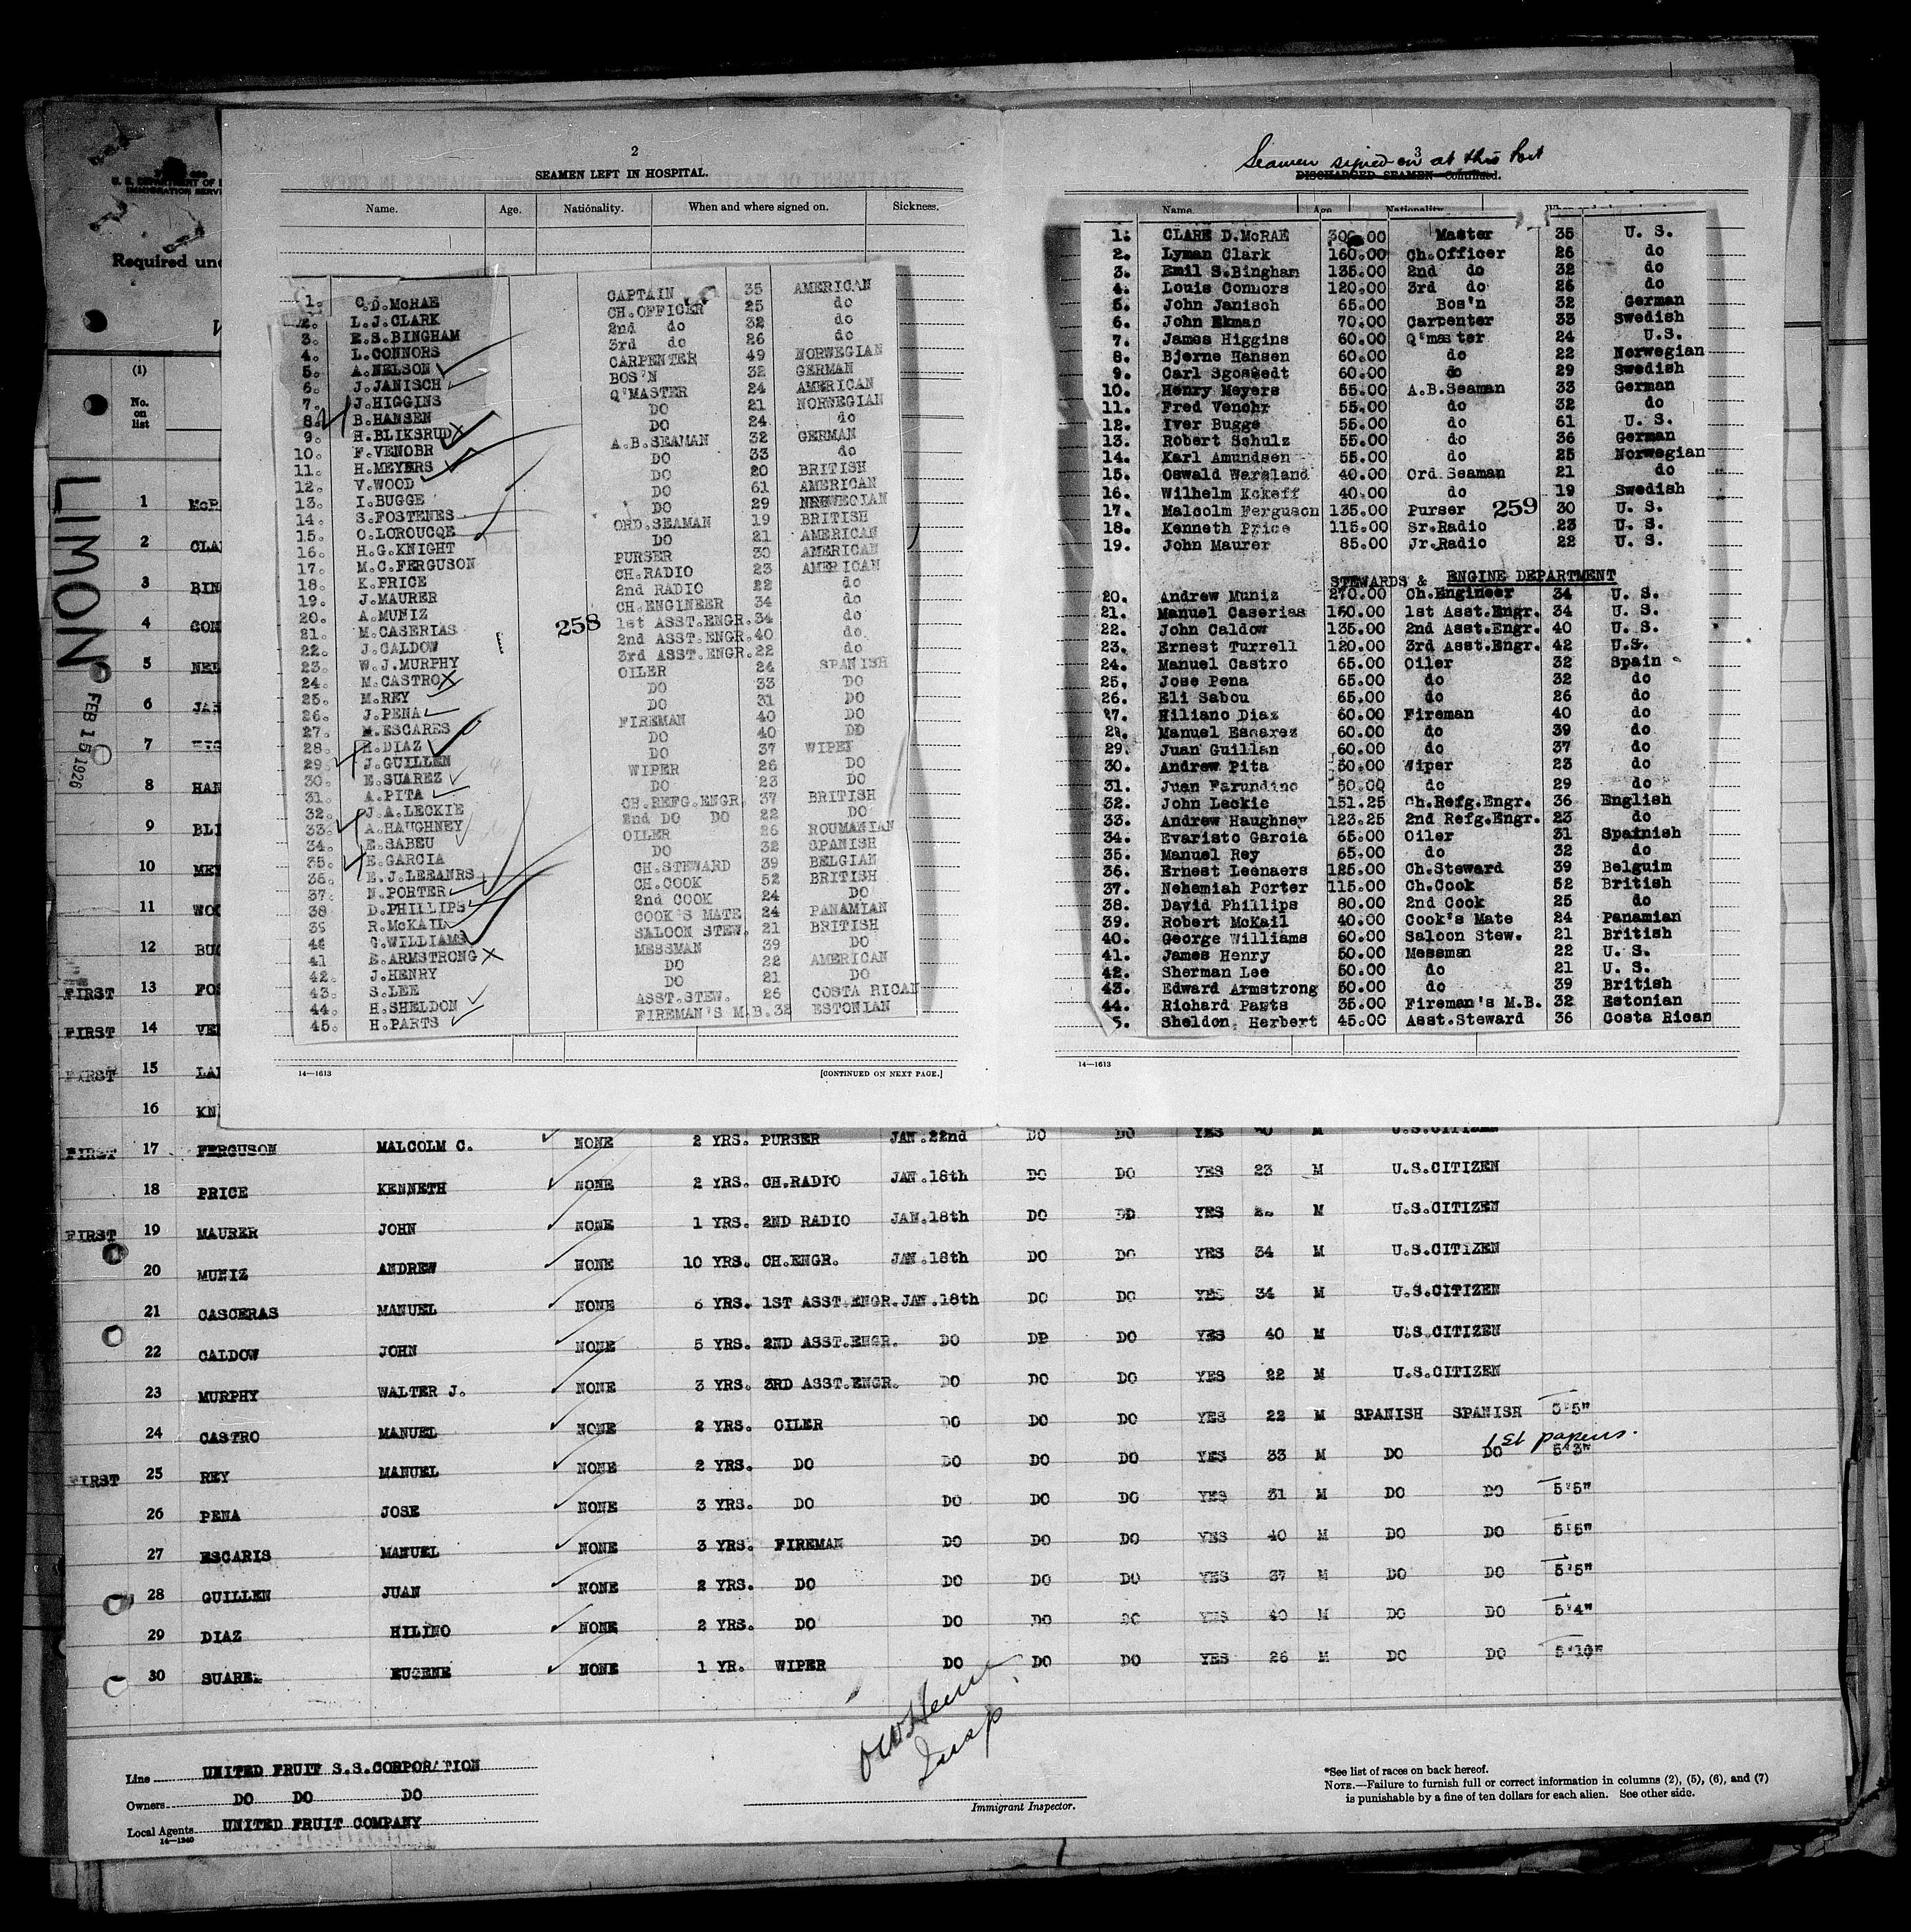 U. S. DEPARTMENT OF
IMMIGRATION SERV
Required und
(1)
No.
on
list
LIMON
FEB 15 1926
1 McR
2 CLA
3 BIN
4 CON
5 NEL
6 JAN
7 HIG
8 HAN
9 BLI
10 MEY
11 WOO
12 BUG
FIRST 13 FOS
FIRST 14 VEN
FIRST 15 LAR
16 KN
2
SEAMEN LEFT IN HOSPITAL.
Name. Age. Nationality. When and where signed on. Sickness.
1. C.D.McRAE CAPTAIN 35 AMERICAN
2. L.J.CLARK CH.OFFICER 25 do
3. E.S.BINGHAM 2nd do 32 do
4. L.CONNORS 3rd do 26 do
5. A.NELSON CARPENTER 49 NORWEGIAN
6. J.JANISCH BOS'N 32 GERMAN
7. J.HIGGINS Q'MASTER 24 AMERICAN
8. B.HANSEN DO 21 NORWEGIAN
9. H.BLIKSRUD DO 24 do
10. F.VENOBR A.B.SEAMAN 32 GERMAN
11. H.MEYERS DO 33 do
12. V.WOOD DO 20 BRITISH
13. I.BUGGE DO 61 AMERICAN
14. S.FOSTENES DO 29 NRWEGIAN
15. O.LOROUCQE ORD.SEAMAN 19 BRITISH
16. H.G.KNIGHT DO 21 AMERICAN
17. M.C.FERGUSON PURSER 30 AMERICAN
18. K.PRICE CH.RADIO 23 AMERICAN
19. J.MAURER 2nd RADIO 22 do
20. A.MUNIZ CH.ENGINEER 34 do
21. M.CASERIAS 258 1st ASST.ENGR.34 do
22. J.CALDOW 2nd ASST.ENGR.40 do
23. W.J.MURPHY 3rd ASST.ENGR.22 do
24. M.CASTRO OILER 24 SPANISH
25. M.REY DO 33 DO
26. J.PENA DO 31 DO
27. M.ESCARES FIREMAN 40 DO
28. H.DIAZ DO 40 DO
29. J.GUILLEN DO 37 WIPER
30. E.SUAREZ WIPER 26 DO
31. A.PITA DO 23 DO
32. J.A.LECKIE CH.REFG.ENGR. 37 BRITISH
33. A.HAUGHNEY 2nd DO DO 22 DO
34. E.SABEU OILER 26 ROUMANIAN
35. E.GARCIA DO 32 SPANISH
36. E.J.LEEANRS CH.STEWARD 39 BELGIAN
37. N.PORTER CH.COOK 52 BRITISH
38 D.PHILLIPS 2nd COOK 24 DO
39 R.McKAIL COOK'S MATE 24 PANAMIAN
40 G.WILLIAMS SALOON STEW. 21 BRITISH
41 E.ARMSTRONG MESSMAN 39 DO
42. J.HENRY DO 22 AMERICAN
43. S.LEE DO 21 DO
44. H.SHELDON ASST.STEW. 26 COSTA RICAN
45. H.PARTS FIREMAN'S M.B.32 ESTONIAN
14—1613 [CONTINUED ON NEXT PAGE.]
3
Seamen signed on at this Port
DISCHARGED SEAMEN—Continued.
Name. Age. Nationality.
1. CLARE D.McRAE 300.00 Master 35 U. S.
2. Lyman Clark 160.00 Ch.Officer 26 do
3. Emil S.Bingham 135.00 2nd do 32 do
4. Louis Connors 120.00 3rd do 26 do
5. John Janisch 65.00 Bos'n 32 German
6. John Ekman 70.00 Carpenter 33 Swedish
7. James Higgins 60.00 Q'master 24 U.S.
8. Bjerne Hansen 60.00 do 22 Norwegian
9. Carl Sgostedt 60.00 do 29 Swedish
10. Henry Meyers 55.00 A.B.Seaman 33 German
11. Fred Venohr 55.00 do 32 do
12. Iver Bugge 55.00 do 61 U. S.
13. Robert Schulz 55.00 do 36 German
14. Karl Amundsen 55.00 do 25 Norwegian
15. Oswald Wergland 40.00 Ord.Seaman 21 do
16. Wilhelm Kokeff 40.00 do 19 Swedish
17. Malcolm Ferguson 135.00 Purser 259 30 U. S.
18. Kenneth Price 115.00 Sr.Radio 23 U. S.
19. John Maurer 85.00 Jr.Radio 22 U. S.
STEWARDS & ENGINE DEPARTMENT
20. Andrew Muniz 270.00 Ch.Engineer 34 U. S.
21. Manuel Caserias 150.00 1st Asst.Engr. 34 U. S.
22. John Caldow 135.00 2nd Asst.Engr. 40 U. S.
23. Ernest Turrell 120.00 3rd Asst.Engr. 42 U.S.
24. Manuel Castro 65.00 Oiler 32 Spain
25. Jose Pena 65.00 do 32 do
26. Eli Sabou 65.00 do 26 do
27. Hiliano Diaz 60.00 Fireman 40 do
28. Manuel Escarez 60.00 do 39 do
29. Juan Guillan 60.00 do 37 do
30. Andrew Pita 50.00 Wiper 23 do
31. Juan Farundino 50.00 do 29 do
32. John Leckie 151.25 Ch.Refg.Engr. 36 English
33. Andrew Haughney 123.25 2nd Refg.Engr. 23 do
34. Evaristo Garcia 65.00 Oiler 31 Spainish
35. Manuel Rey 65.00 do 32 do
36. Ernest Leenaers 125.00 Ch.Steward 39 Belguim
37. Nehemiah Porter 115.00 Ch.Cook 52 British
38. David Phillips 80.00 2nd Cook 25 do
39. Robert McKail 40.00 Cook's Mate 24 Panamian
40. George Williams 60.00 Saloon Stew. 21 British
41. James Henry 50.00 Messman 22 U. S.
42. Sherman Lee 50.00 do 21 U. S.
43. Edward Armstrong 50.00 do 39 British
44. Richard Parts 35.00 Fireman's M.B. 32 Estonian
5. Sheldon, Herbert 45.00 Asst.Steward 36 Costa Rican
14—1613
FIRST 17 FERGUSON MALCOLM C. NONE 2 YRS. PURSER JAN.22nd DO DO YES 30 M U.S.CITIZEN
18 PRICE KENNETH NONE 2 YRS. CH.RADIO JAN.18th DO DO YES 23 M U.S.CITIZEN
FIRST 19 MAURER JOHN NONE 1 YRS. 2ND RADIO JAN.18th DO DO YES 22 M U.S.CITIZEN
20 MUNIZ ANDREW NONE 10 YRS. CH.ENGR. JAN.18th DO DO YES 34 M U.S.CITIZEN
21 CASCERAS MANUEL NONE 6 YRS. 1ST ASST.ENGR.JAN.18th DO DO YES 34 M U.S.CITIZEN
22 CALDOW JOHN NONE 5 YRS. 2ND ASST.ENGR. DO DO DO YES 40 M U.S.CITIZEN
23 MURPHY WALTER J. NONE 3 YRS. 3RD ASST.ENGR. DO DO DO YES 22 M U.S.CITIZEN
24 CASTRO MANUEL NONE 2 YRS. OILER DO DO DO YES 22 M SPANISH SPANISH 5'5"
1st papers.
FIRST 25 REY MANUEL NONE 2 YRS. DO DO DO DO YES 33 M DO DO 5'3"
26 PENA JOSE NONE 3 YRS. DO DO DO DO YES 31 M DO DO 5'5"
27 ESCARIS MANUEL NONE 3 YRS. FIREMAN DO DO DO YES 40 M DO DO 5'5"
28 GUILLEN JUAN NONE 2 YRS. DO DO DO DO YES 37 M DO DO 5'5"
29 DIAZ HILINO NONE 2 YRS. DO DO DO DO YES 40 M DO DO 5'4"
30 SUAREZ EUGENE NONE 1 YR. WIPER DO DO DO YES 26 M DO DO 5'10"
Insp.
Line UNITED FRUIT S.S.CORPORATION
Owners DO DO DO
Local Agents UNITED FRUIT COMPANY
14—1240
Immigrant Inspector.
*See list of races on back hereof.
NOTE.—Failure to furnish full or correct information in columns (2), (5), (6), and (7)
is punishable by a fine of ten dollars for each alien. See other side.